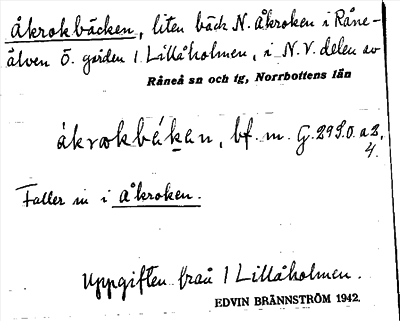 Åkrokbäcken, liten bäck N. Åkroken i Råne-
älven Ö. gården 1 Lillåholmen, i N.V. delen av
Råneå sn och tg, Norrbottens län
åkrokbɛ́kan, bf. m. G. 29 S.O. a 2,
4.
Faller in i Åkroken.
Uppgiften från 1 Lillåholmen.
EDVIN BRÄNNSTRÖM 1942.